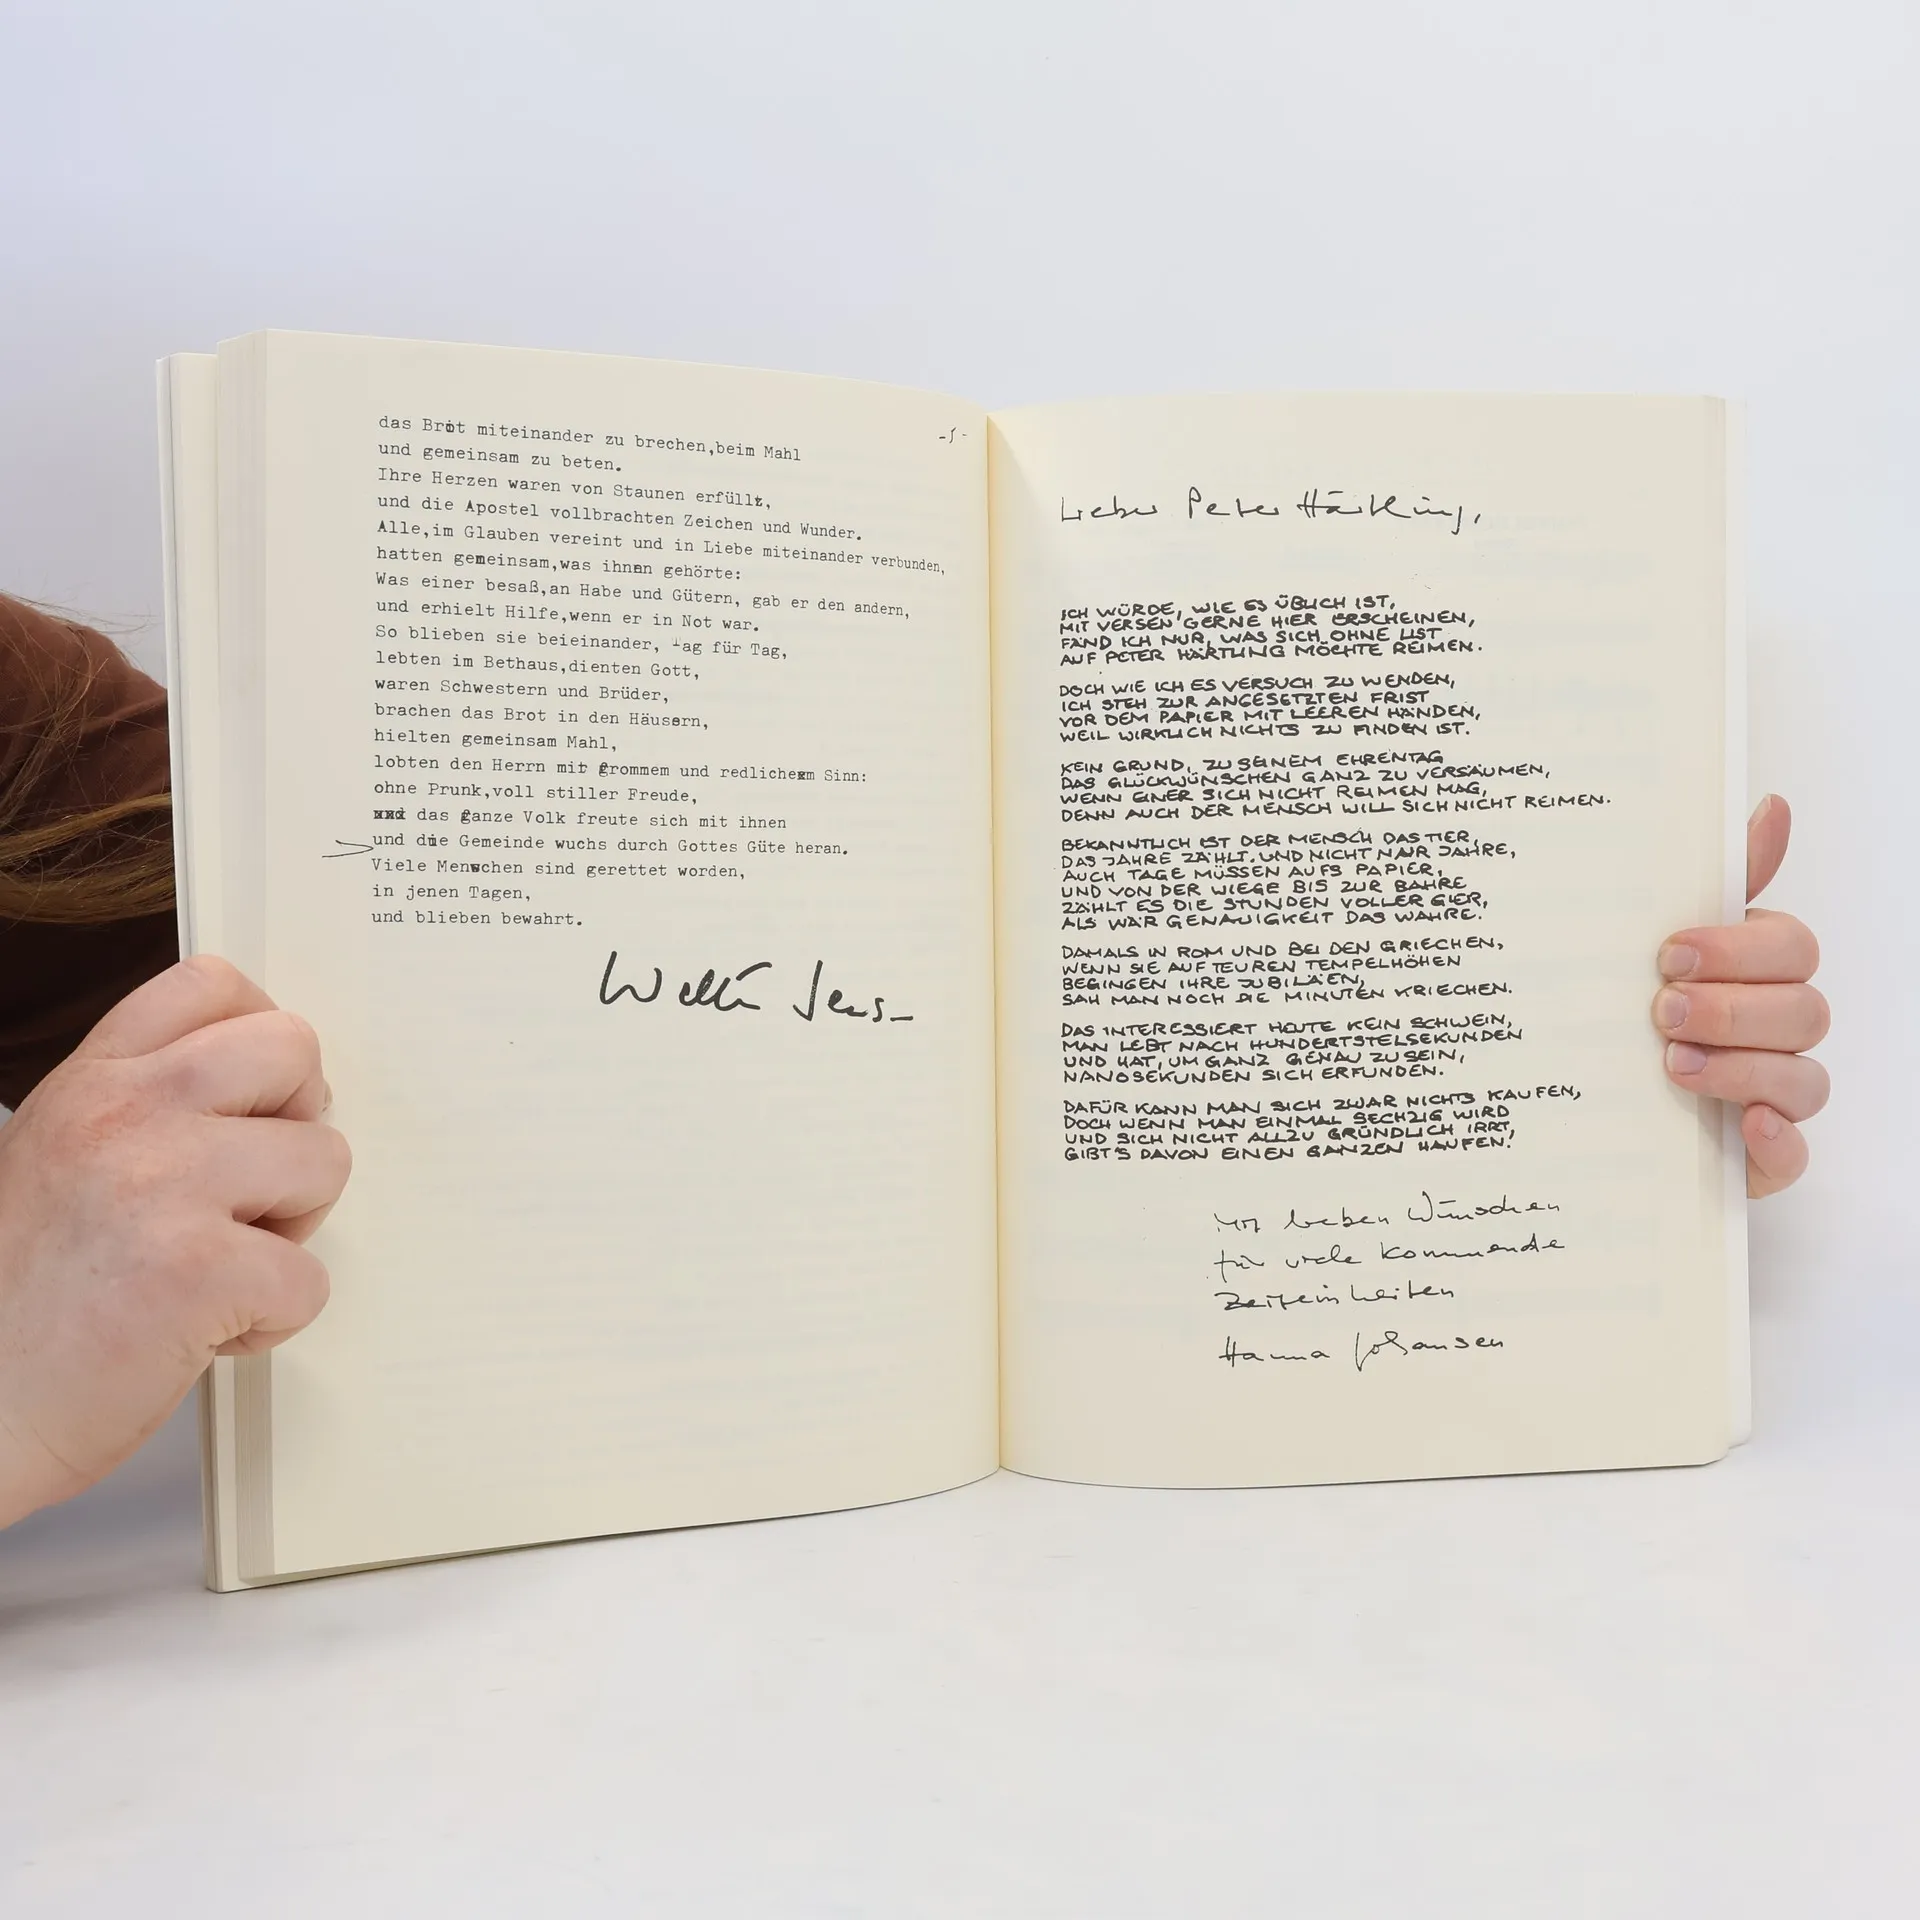 -5-
das Brot miteinander zu brechen,beim Mahl
und gemeinsam zu beten.
Ihre Herzen waren von Staunen erfüllt,
und die Apostel vollbrachten Zeichen und Wunder.
Alle,im Glauben vereint und in Liebe miteinander verbunden,
hatten gemeinsam,was ihnen gehörte:
Was einer besaß,an Habe und Gütern, gab er den andern,
und erhielt Hilfe,wenn er in Not war.
So blieben sie beieinander, Tag für Tag,
lebten im Bethaus,dienten Gott,
waren Schwestern und Brüder,
brachen das Brot in den Häusern,
hielten gemeinsam Mahl,
lobten den Herrn mit frommem und redlichem Sinn:
ohne Prunk,voll stiller Freude,
und das ganze Volk freute sich mit ihnen
und die Gemeinde wuchs durch Gottes Güte heran.
Viele Menschen sind gerettet worden,
in jenen Tagen,
und blieben bewahrt.
Walter Jens
Lieber Peter Härtling,
ICH WÜRDE, WIE ES ÜBLICH IST,
MIT VERSEN GERNE HIER ERSCHEINEN,
FÄND ICH NUR, WAS SICH OHNE LIST
AUF PETER HÄRTLING MÖCHTE REIMEN.
DOCH WIE ICH ES VERSUCH ZU WENDEN,
ICH STEH ZUR ANGESETZTEN FRIST
VOR DEM PAPIER MIT LEEREN HÄNDEN,
WEIL WIRKLICH NICHTS ZU FINDEN IST.
KEIN GRUND, ZU SEINEM EHRENTAG
DAS GLÜCKWÜNSCHEN GANZ ZU VERSÄUMEN,
WENN EINER SICH NICHT REIMEN MAG,
DENN AUCH DER MENSCH WILL SICH NICHT REIMEN.
BEKANNTLICH IST DER MENSCH DAS TIER,
DAS JAHRE ZÄHLT. UND NICHT NUR JAHRE,
AUCH TAGE MÜSSEN AUFS PAPIER,
UND VON DER WIEGE BIS ZUR BAHRE
ZÄHLT ES DIE STUNDEN VOLLER GIER,
ALS WÄR GENAUIGKEIT DAS WAHRE.
DAMALS IN ROM UND BEI DEN GRIECHEN,
WENN SIE AUF TEUREN TEMPELHÖHEN
BEGINGEN IHRE JUBILÄEN,
SAH MAN NOCH DIE MINUTEN KRIECHEN.
DAS INTERESSIERT HEUTE KEIN SCHWEIN,
MAN LEBT NACH HUNDERTSTELSEKUNDEN
UND HAT, UM GANZ GENAU ZU SEIN,
NANOSEKUNDEN SICH ERFUNDEN.
DAFÜR KANN MAN SICH ZWAR NICHTS KAUFEN,
DOCH WENN MAN EINMAL SECHZIG WIRD
UND SICH NICHT ALLZU GRÜNDLICH IRRT,
GIBT'S DAVON EINEN GANZEN HAUFEN.
Mit lieben Wünschen
für viele kommende
Zeiteinheiten
Hanna Johansen